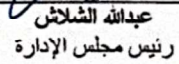 عبدالله الشلاش
رئيس مجلس الإدارة